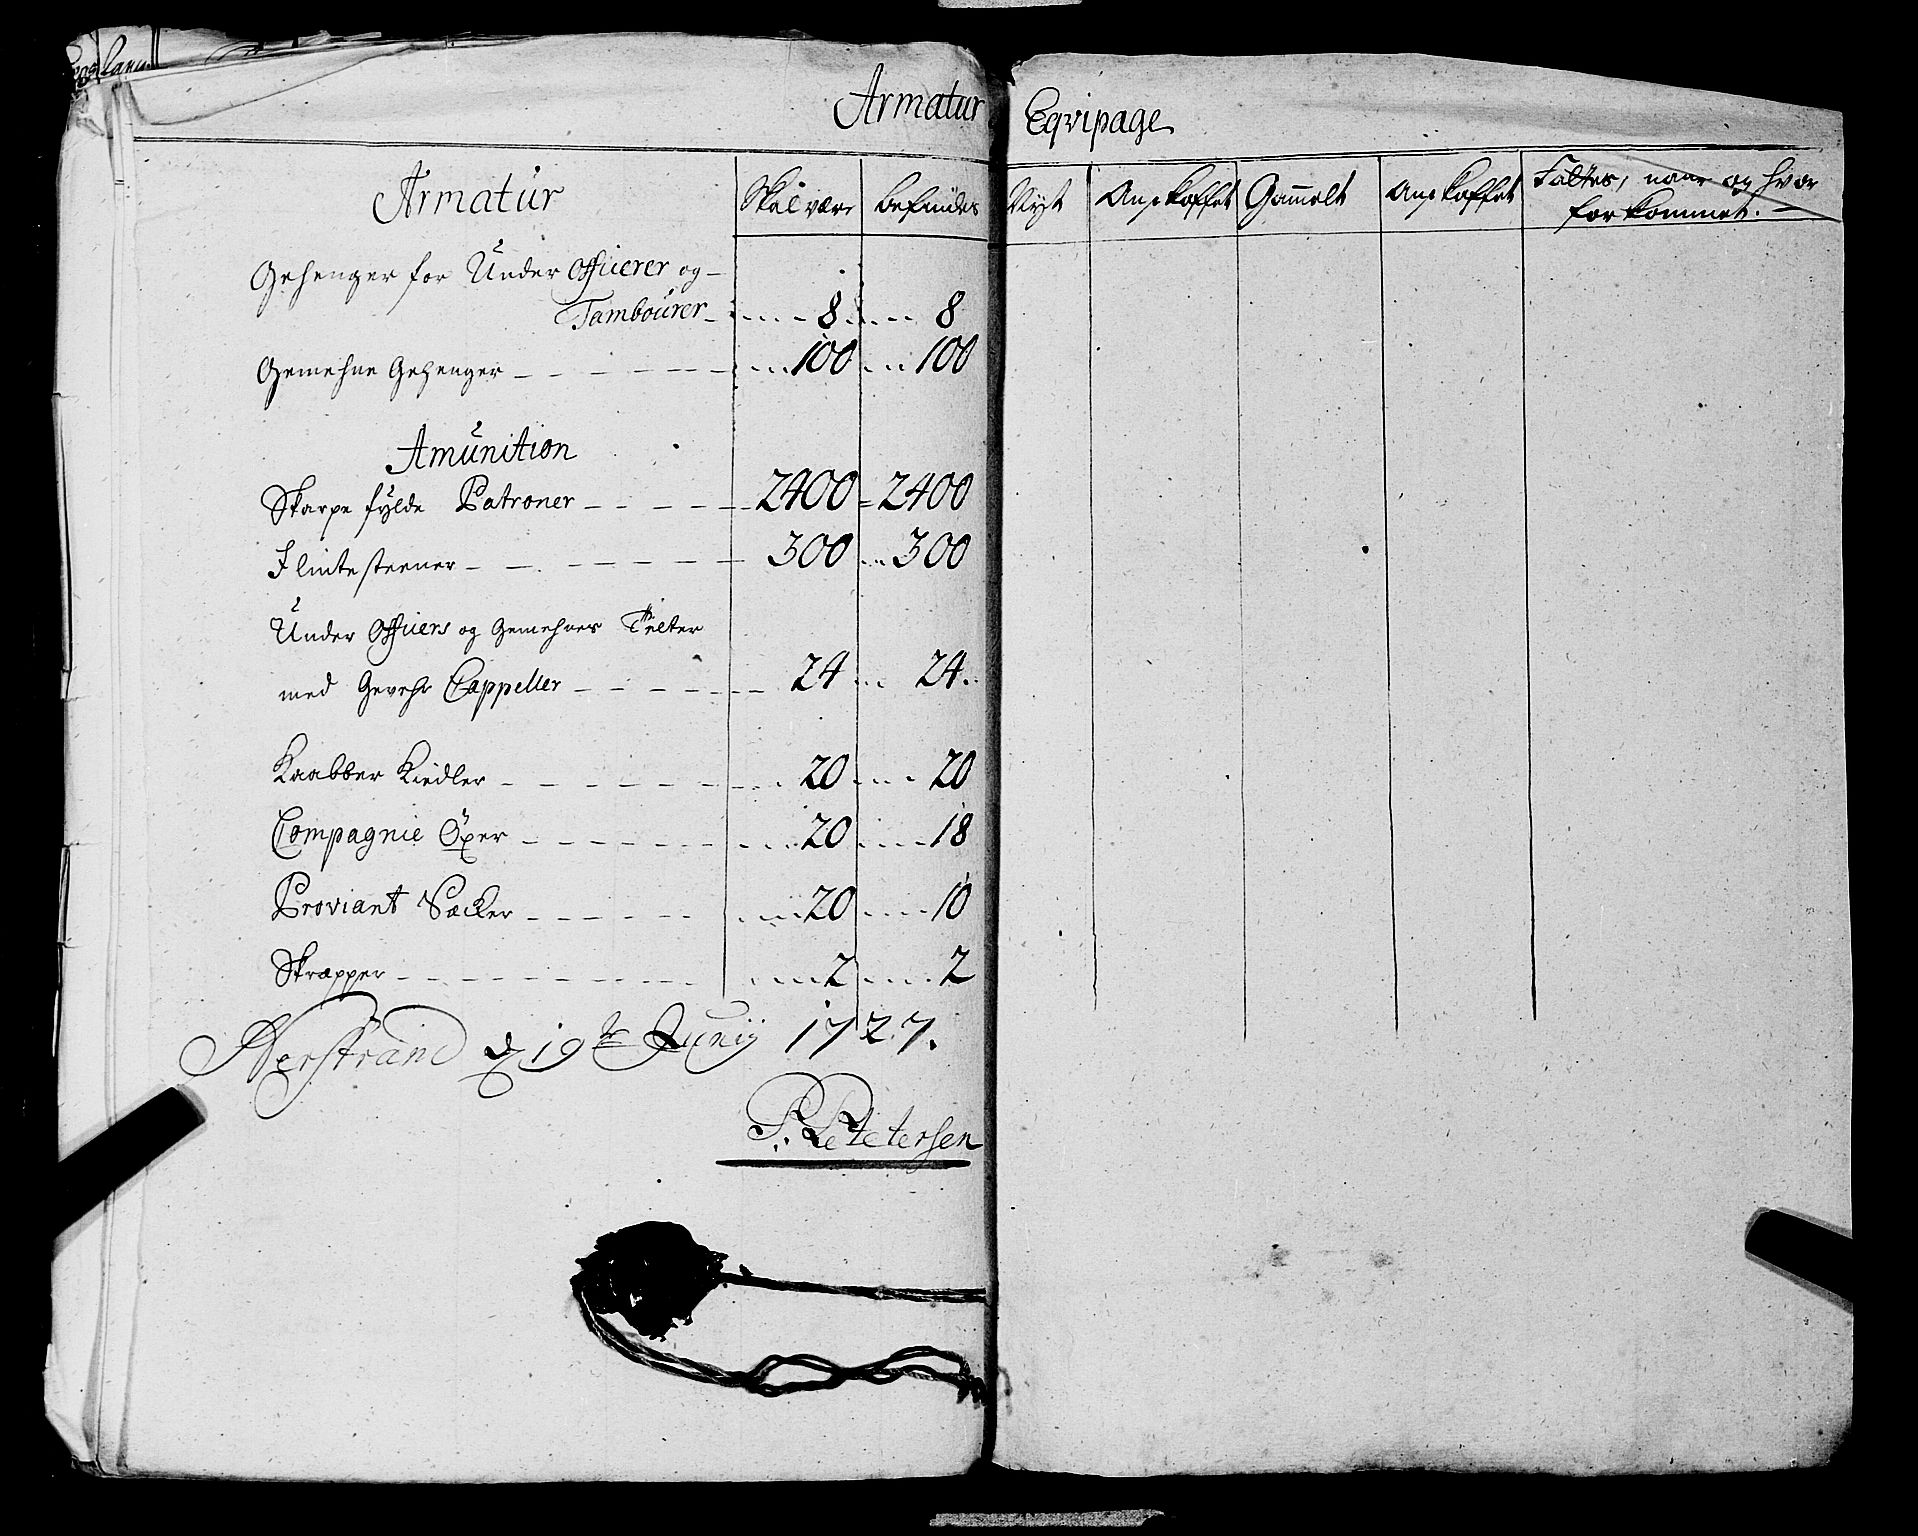 Armatur Eqvipage
Armatür Skal være befindes Nÿt Anskaffet Gam̄elt Anskaffet Faltes, naar og hvor
forkommet.
Gehenger for Ünder Officerer og
Tamboürer 8 8
Gemehne Gehenger 100 100
Amünition
Skarpe fÿlde Patroner 2400 2400
Flintesteener 300 300
Ünder Officers og Gemehnes Telter
med Gevehr Cappeller 24 24
Kaabber Kiedler 20 20
Compagnie Öxer 20 18
Proviant Sæcker 20 10
Skræpper 2 2
Nerstrand d 19te Junij 1727.
P: Petersen